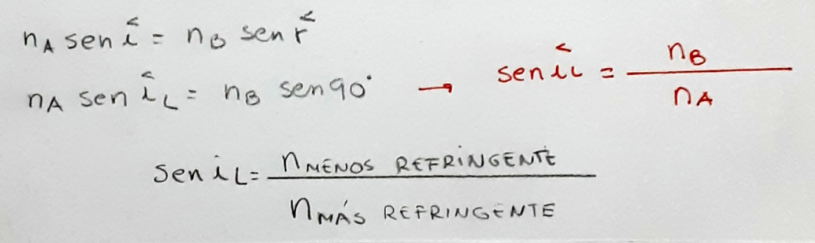 nA sen î = nB sen r̂
nA sen îL = nB sen90° → sen îL = nB / nA
sen iL = nMENOS REFRINGENTE / nMÁS REFRINGENTE